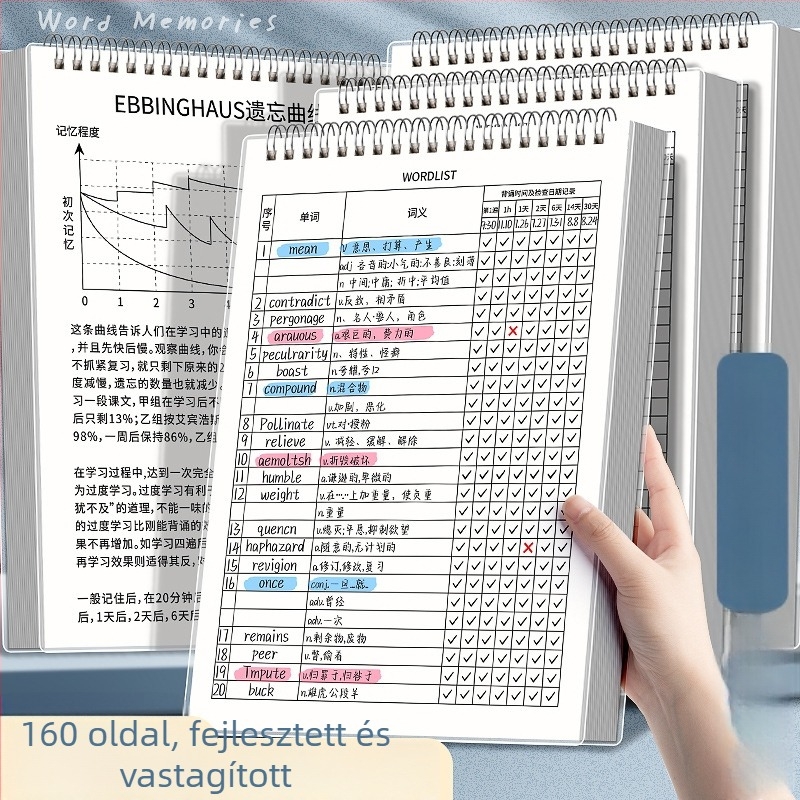 Word Memories
EBBINGHAUS遗忘曲线
记忆程度
初次记忆
0 1 2 3 4
这条曲线告诉人们在学习中的遗
,并且先快后慢。观察曲线,你会
不抓紧复习,就只剩下原来的2
度减慢,遗忘的数量也就减少。
习一段课文,甲组在学习后不
后只剩13%;乙组按艾宾浩斯
98%,一周后保持86%,乙组
在学习过程中,达到一次完全
为过度学习。过度学习有利于
犹不及"的道理,不能一味的
的过度学习比刚能背诵的效
果不再增加。如学习四遍后
再学习效果则适得其反,
一般记住后,在20分钟后
后,1天后,2天后,6天后
WORDLIST
序号 单词 词义 背诵时间及检查日期记录
第1遍 1h 1天 2天 6天 14天 30天
7.30 1.10 7.26 7.27 7.31 8.8 8.24
1 mean v 意思、打算、产生
adj 吝啬的;小气的;不善良;刻薄
n 中间;中庸; 折中;平均值
2 contradict v.反驳, 相矛盾
3 pergonage n. 名人·要人, 角色
4 arauous a.艰巨的, 费力的
5 peculrarity n. 特性、怪癖
6 boast n.夸耀,夸口
7 compound n.混合物
v.加剧, 恶化
8 Pollinate vt.对·授粉
9 relieve v. 减轻、缓解、解除
10 aemoltsh v.拆毁破坏
11 humble a.谦逊的,卑微的
12 weight v.在……上加重量, 使负重
n.重量
13 quencn v.熄灭;平息,抑制欲望
14 haphazard a.随意的,无计划的
15 revigion a.修订,修改,复习
16 once conj.一旦…就…
adv.曾经
adv.一次
17 remains n.剩余物,废物
18 peer v.瞥,偷看
19 Tmpute v.归罪于,归咎于
20 buck n.雄鹿 公段羊
160 oldal, fejlesztett és
vastagított